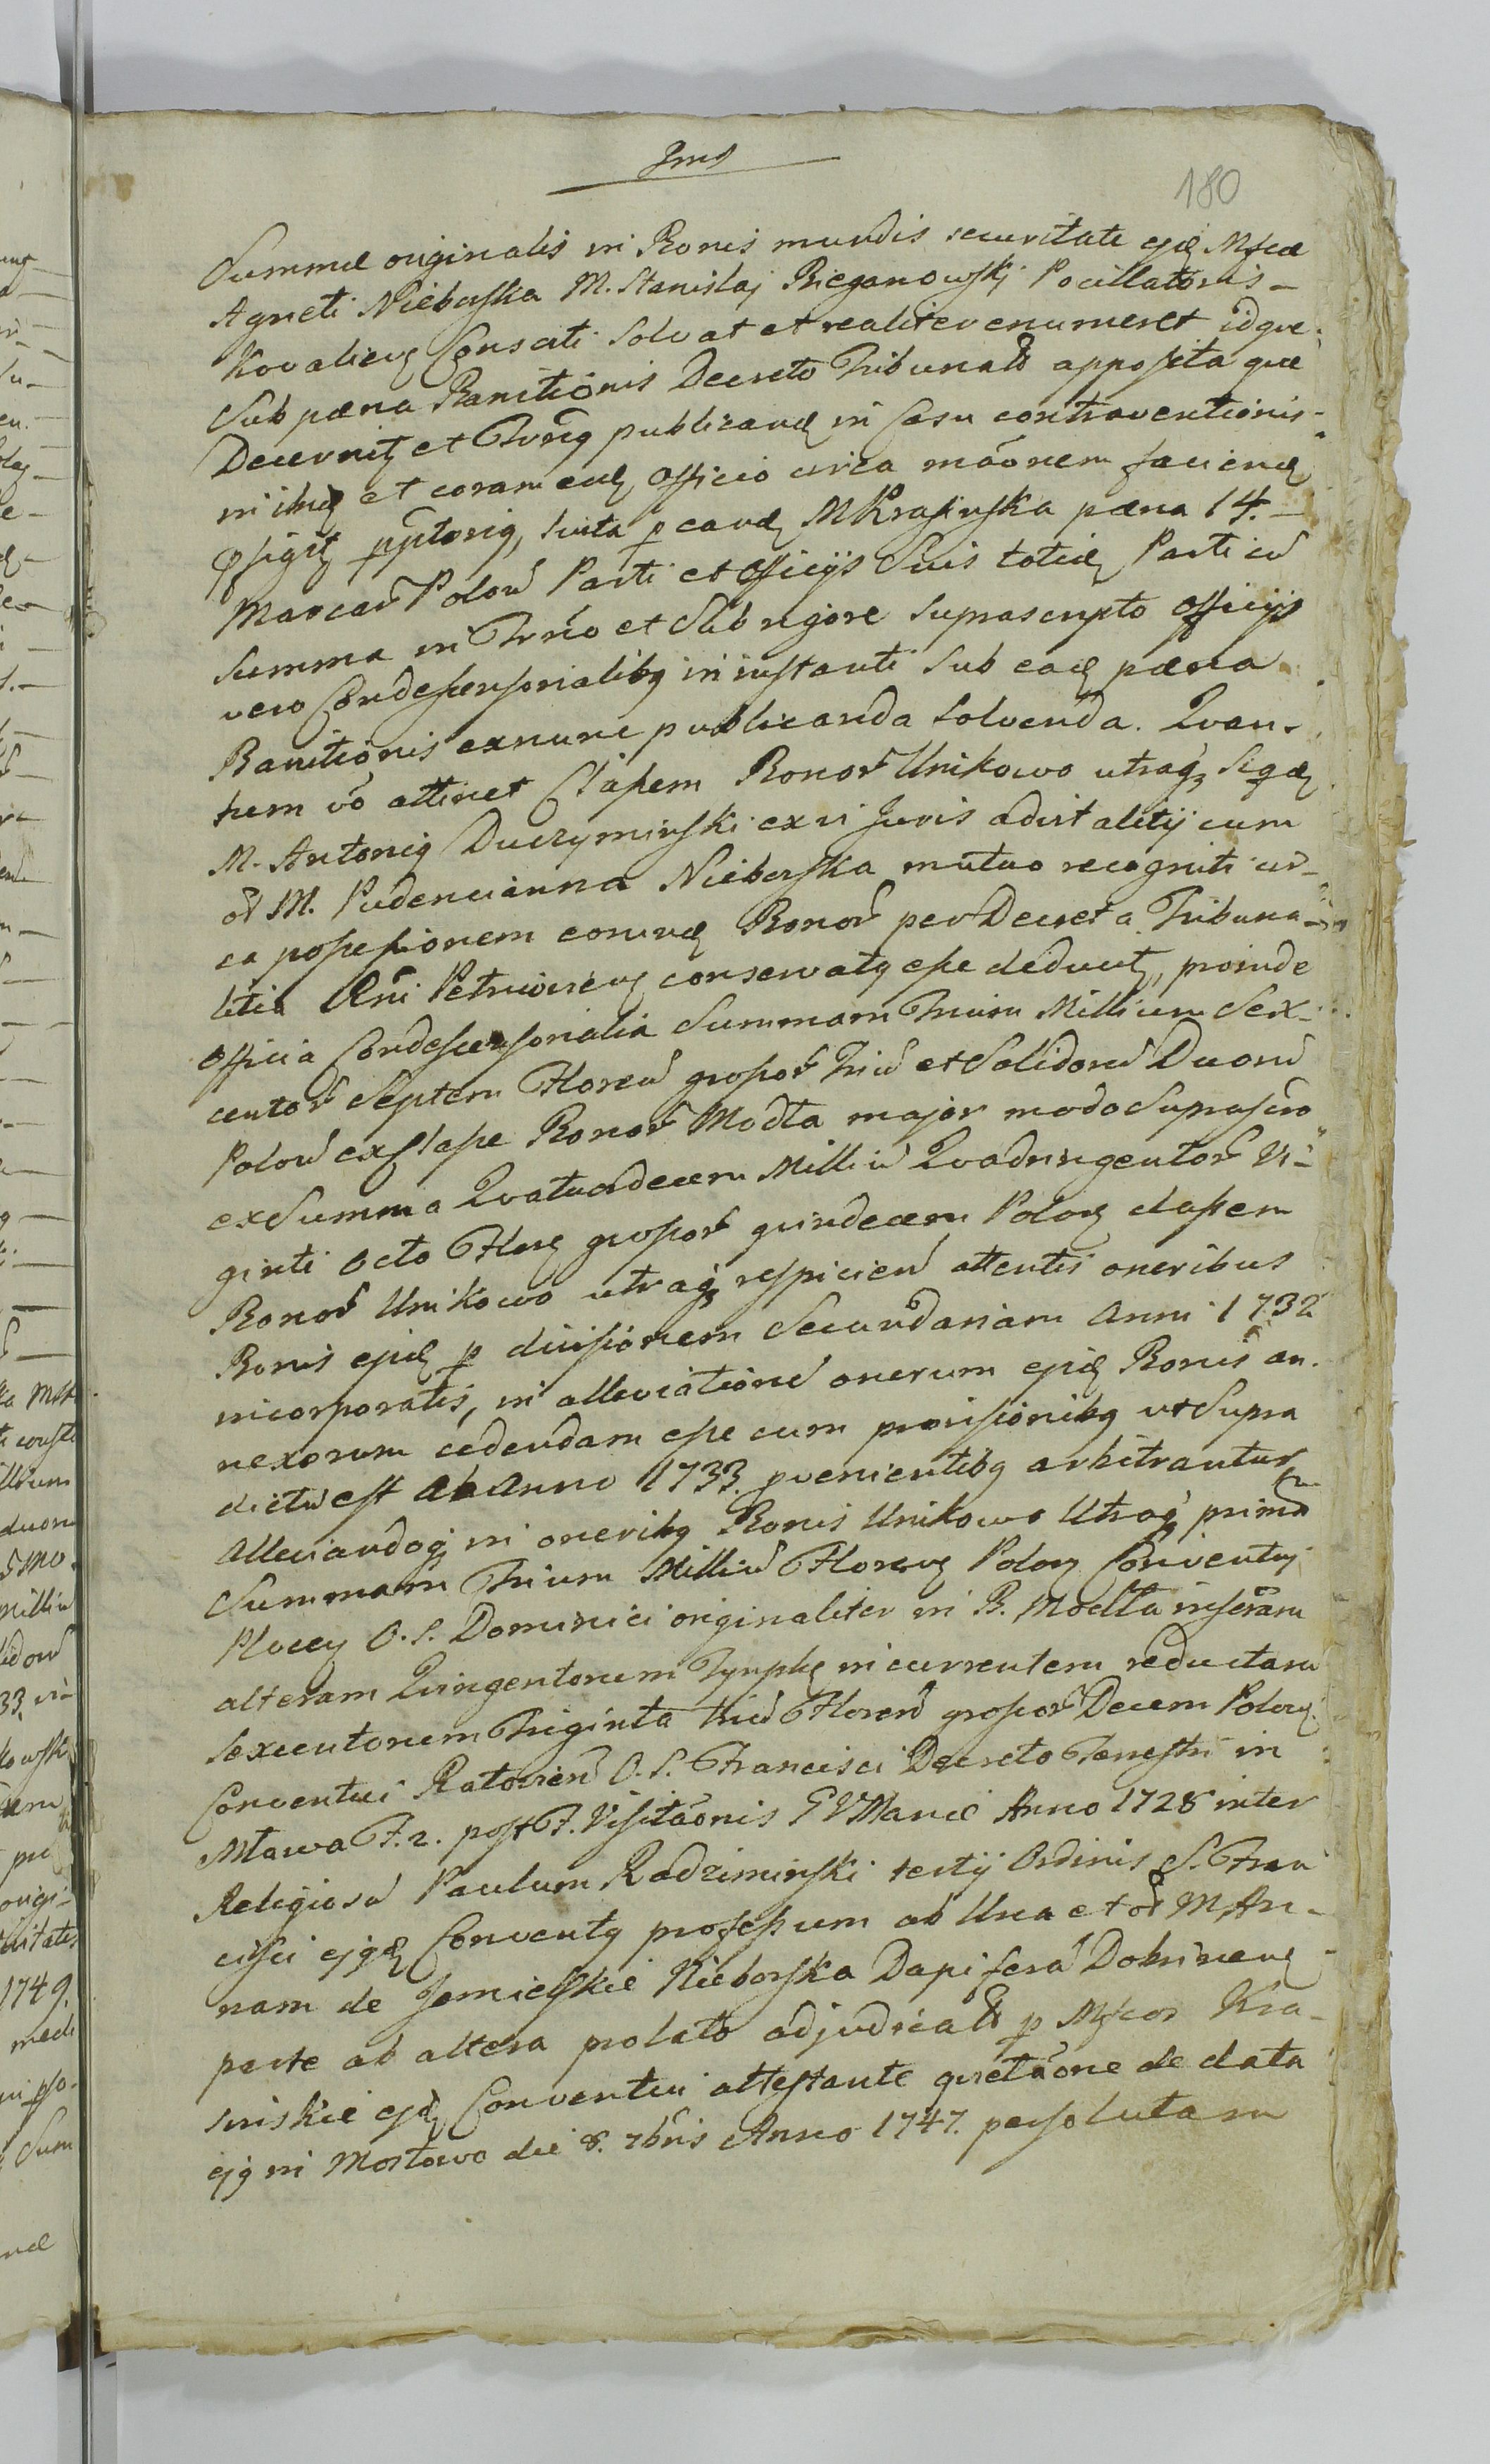 180
Summæ originalis in Bonis mundis securitate ejd Mfcæ
Agneti Nieborska M. Stanislaj Bieganowskj Pocillatoris
Kovalien Consorti solvat et realiter enumeret idque
Sub pæna Banitionis Decreto Tribunali apposita quæ
Decernit et publicand in Casu contraventionis
in et coram eod Officio circa mãonem faciend
luita p eand M Krasinska pæna 14.
Marcar Polon Parti et Officijs Suis totid Parti cũ
Summa in Trno et Sub rigore suprascripto Officijs
vero Condescensorialibq in instanti sub ead pæna
Banitionis exnunc publicanda solvenda. Quan-
tum võ attinet Classem Bonor Unikowo utraq,
M. Antoniq Duczyminski ex vi Juris advitalitij cum
M. Pudencianna Nieborska mutuo recogniti cir-
ca possessionem eorund Bonor per Decreta Tribuna-
litia Petricovien conservatq esse deducit, proinde
Officia Condescensorialia Summam Trium Millium Sex-
centor Septem Floren grossor Triũ et Solidorũ Duorũ
Polon ex Classe Bonor Modła major modo Suprascro
ex Summa Quatuordecem Milliũ Quadringentor Vi-
ginti Octo Flor grossor quindecem Polon classem
Bonor Unikowo utraq, respicien attentis oneribus
Bonis ejusd p divisionem Secundariam Anni 1732
incorporatis, in alleviationẽ onerum ejusd Bonis an-
nexorum cedendam esse cum provisionibq ut Supra
dictũ est ab Anno 1733. pvenientibq arbitrantur
Alleviandoq in oneribq Bonis Unikowo Utraq primo
Summam Trium Milliũ Floren Polon Conventuj
Plocen O. S. Dominici originaliter in B. Modła inscram
alteram Quingentorum Tymph in currentem reductam
Sexcentorum Triginta triũ Floren grossor Decem Polon
Conventui Ratovien O. S. Francisci Decreto Terrestri in
Mława F. 2. post F. Visitaõnis B V Mariæ Anno 1728 inter
Religiosũ Paulum Radziminski tertij Ordinis S. Fran
cisci ejqd Conventq professum ab Una et M An-
nam de Jemielskie Nieborska Dapifera Dobrinen
parte ab altera prolato adjudicatã p Mfcos Kra-
sinskie ejd Conventui attestante quietãone de data
ejq in Mostowo die 8. 7bris Anno 1747. persolutam